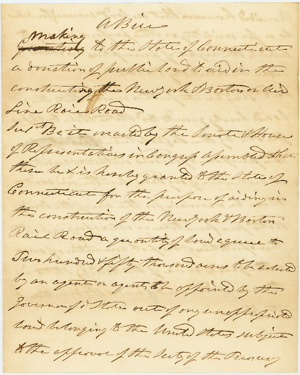 A Bill
making
granting to the State of Connecticut
a donation of public land to aid in the
constructing the New York & Boston or Air
Line Rail Road
Sec 1 Be it enacted by the Senate & House
of Representatives in Congress assembled That
there be & is hereby granted to the State of
Connecticut for the purpose of aiding in
the construction of the New York & Boston
Rail Road a quantity of land equal to
Two hundred & fifty thousand acres to be selected
by an agent or agents to be appointed by the
Governor of State out of any unappropriated
land belonging to the United States subject
to the approval of the Secty of the Treasury